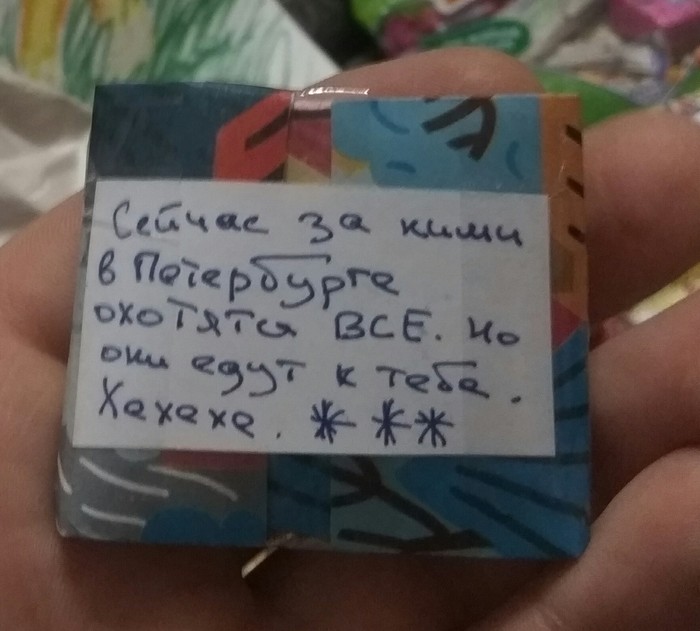 Сейчас за ними
в Петербурге
охотятся ВСЕ. Но
они едут к тебе.
Хехехе. ***